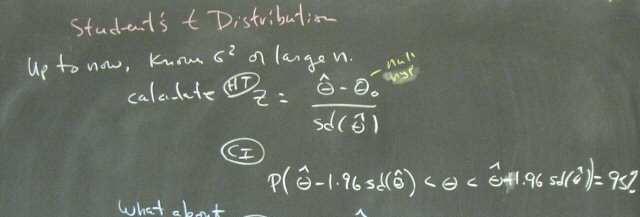 Student's t Distribution
Up to now, known σ² or large n.
calculate HT Z = (θ̂ - θ₀) / sd(θ̂)
null hyp
CI
P( θ̂ - 1.96 sd(θ̂) < θ < θ̂ + 1.96 sd(θ̂) ) = 95%
What about